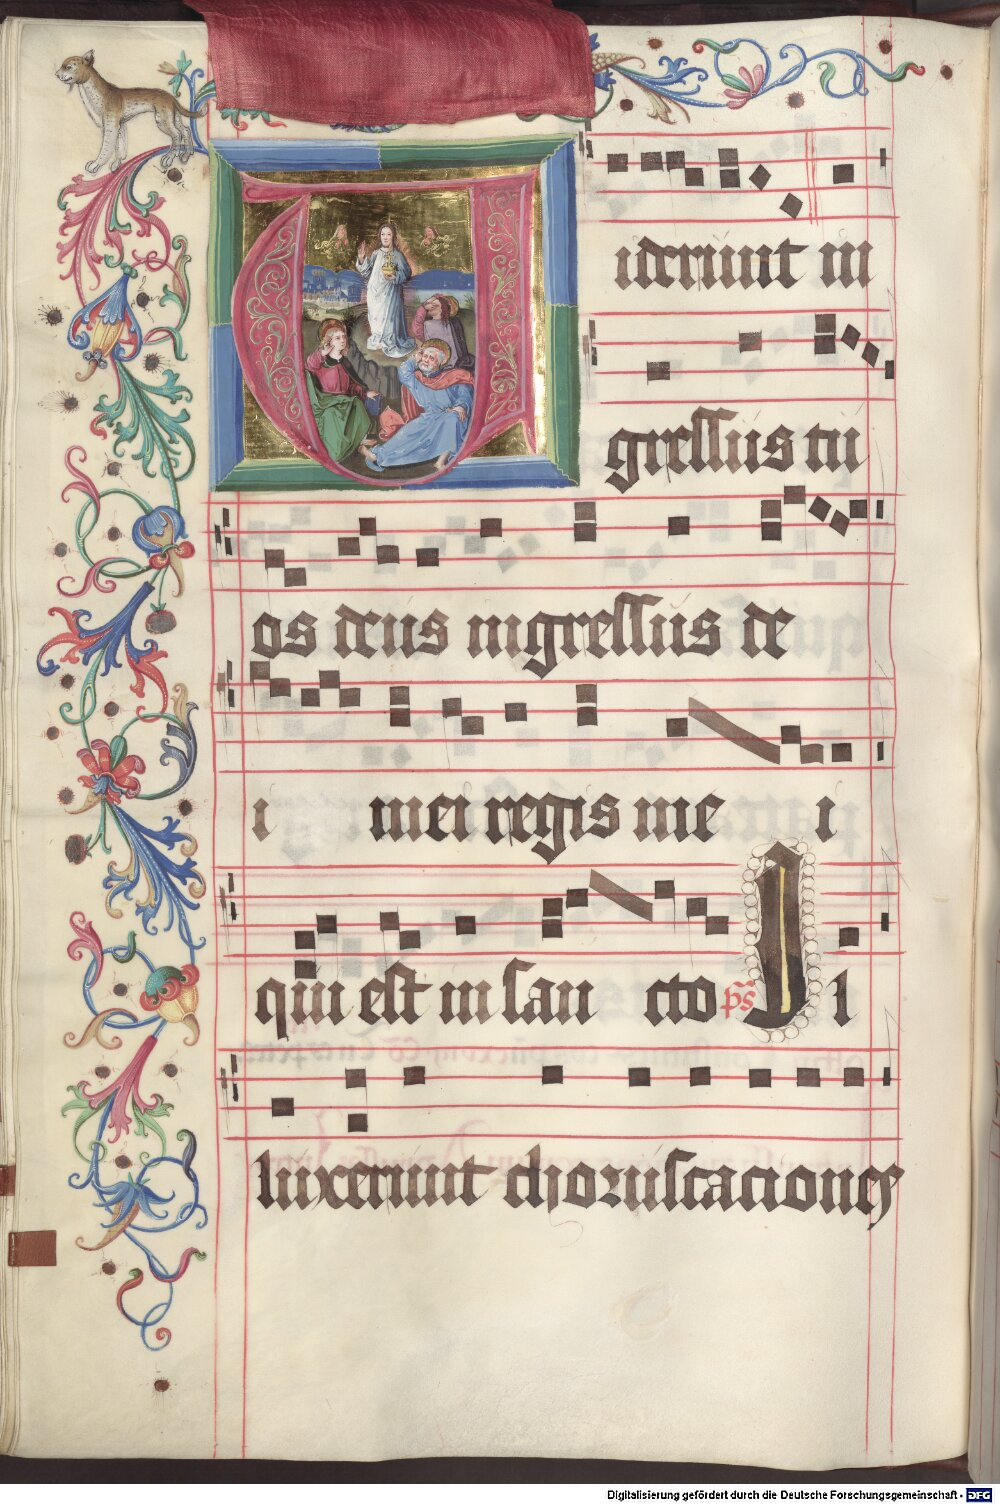 Uiderunt in
gressus tu
os deus ingressus de
i mei regis me i
qui est in san cto ps Il
luxerunt choruscaciones
Digitalisierung gefördert durch die Deutsche Forschungsgemeinschaft - DFG